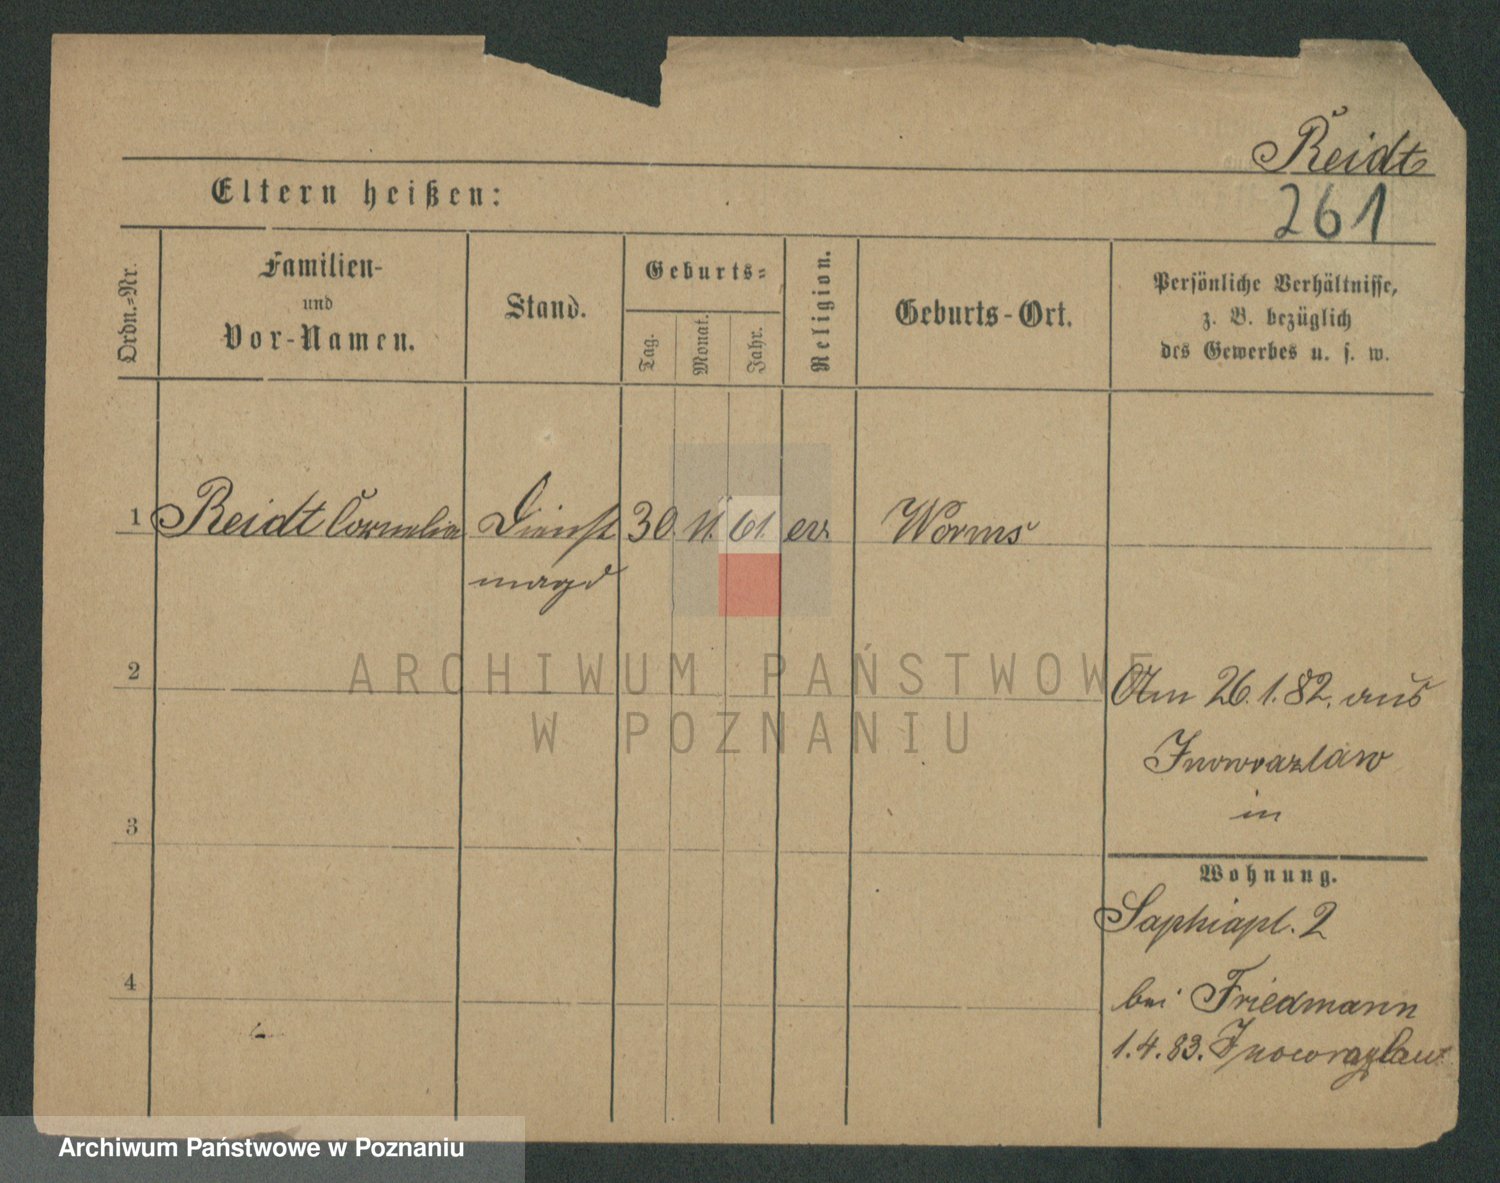 Reidt
261
Eltern heißen:
Ordn.-Nr.
Familien-
und
Vor-Namen.
Stand.
Geburts-
Tag.
Monat.
Jahr.
Religion.
Geburts-Ort.
Persönliche Verhältnisse,
z. B. bezüglich
des Gewerbes u. s. w.
1 Reidt Cornelia Dienst 30. 11. 61. ev. Worms
magd
ARCHIWUM PAŃSTWOWE
W POZNANIU
2
Am 26.1.82. aus
Inowrazlaw
in
3
Wohnung.
Saphiapl. 2
4
bei Friedmann
1.4.83. Inowrazlaw
Archiwum Państwowe w Poznaniu